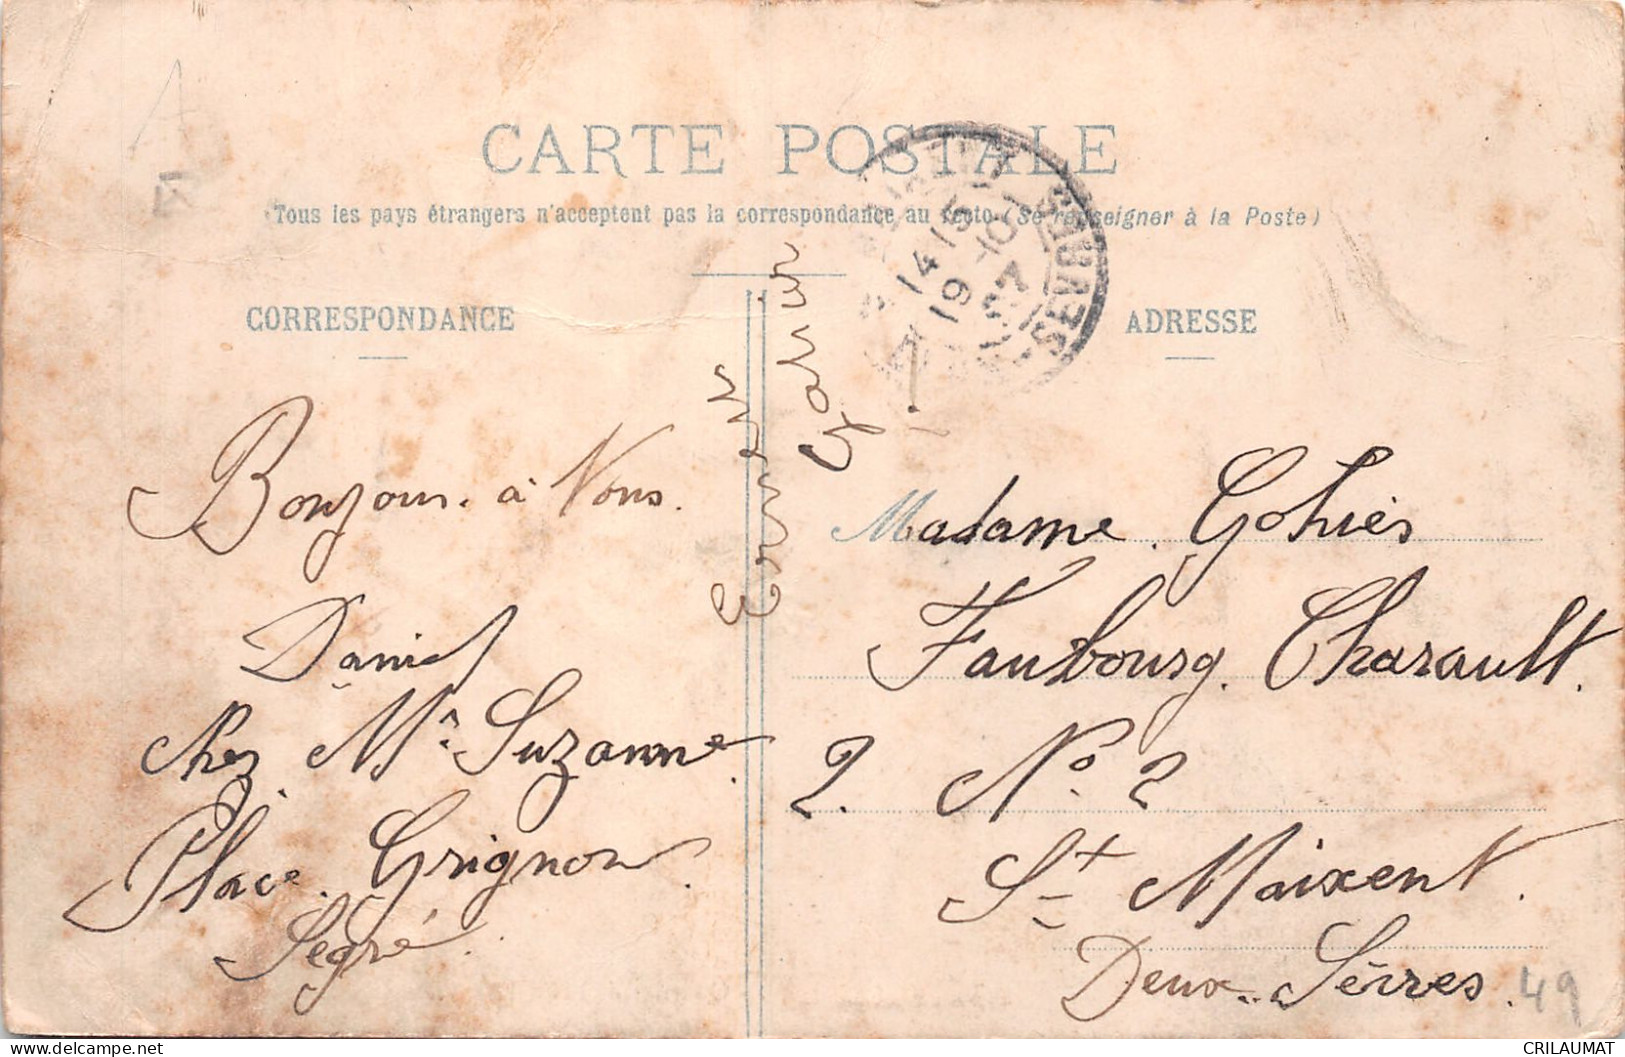 CARTE POSTALE
Tous les pays étrangers n'acceptent pas la correspondance au recto (Se renseigner à la Poste)
CORRESPONDANCE
ADRESSE
14 15
19 - 10
SEVRES
Bonjour. à Vous.
Daniel
chez Mme Suzanne
Place. Grignon.
Segré.
Madame. Gohier
Faubourg. Charault.
2. No. 2
St Maixent.
Deux-Sèvres.
49
CRILAUMAT